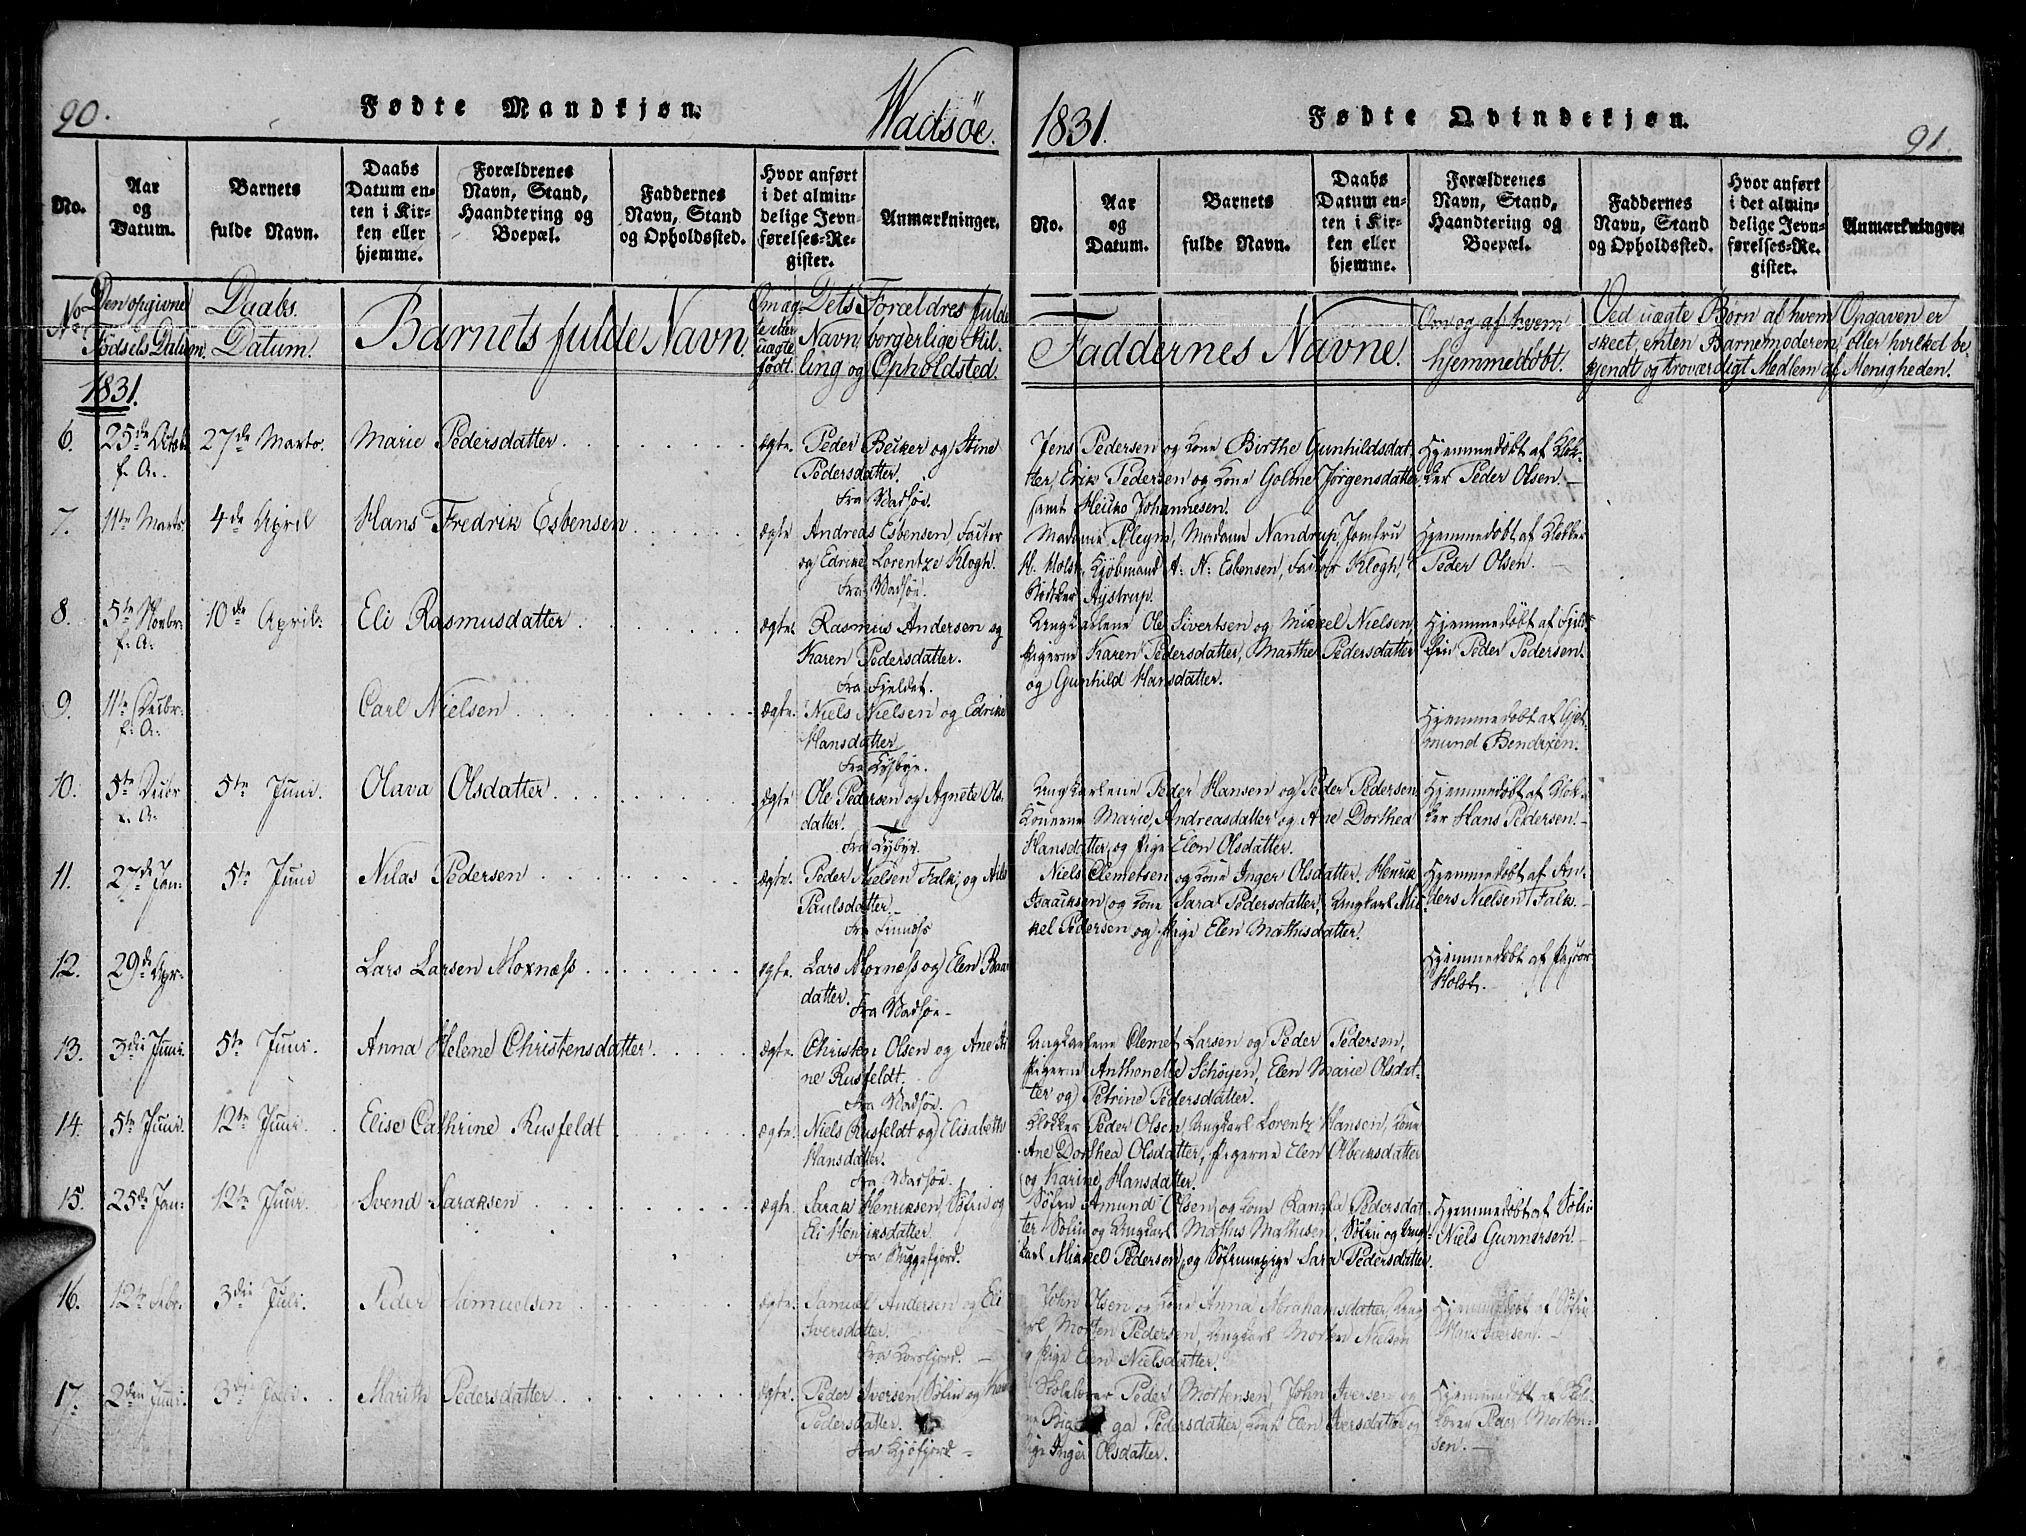 90.
Fødte Mandkjøn.
Wadsöe.
No.
Aar og Datum.
Barnets fulde Navn.
Daabs Datum enten i Kirken eller hjemme.
Forældrenes Navn, Stand, Haandtering og Boepæl.
Faddernes Navn, Stand og Opholdssted.
Hvor anført i det almindelige Jevnførelses-Register.
Anmærkninger.
No. Den opgivne Fødsels Datum.
Daabs Datum.
Barnets fulde Navn.
Om ægte eller uægte født.
Dets Forældres fulde Navn, borgerlige Stilling og Opholdsted.
1831.
6. 25de Octob. f. A. 27de Marts. Marie Pedersdatter. ægte. Peder Beiker og Stine
Pedersdatter.
Fra Wadsöe.
7. 11te Marts 4de April Hans Fredrik Esbensen ægte Andreas Esbensen, Factor
og Edrike Lorentze Klogh.
Fra Wadsöe.
8. 5te Novbr. f. A. 10de April. Eli Rasmusdatter ægte. Rasmus Andersen og
Karen Pedersdatter.
Fra Fjeldet.
9. 11te Decbr. f. A. Carl Nielsen ægte. Niels Nielsen og Edrike
Hansdatter
Fra Kybye.
10. 5te Decbr f. A. 5te Juni. Olava Olsdatter ægte Ole Pedersen og Agnete Ols-
datter.
Fra Kybye.
11. 27de Jan: 5te Juni Nilas Pedersen ægte. Peder Nielsen Falk, og
Paulsdatter.
12. 29de Apr. Lars Larsen Moxness ægte. Lars Moxness og Elen
datter.
Fra Wadsöe
13. 3die Juni. 5te Juni. Anna Helene Christensdatter. ægte. Christen Olsen og Ane
ne Rusfeldt.
Fra Wadsöe.
14. 5te Juni. 12te Juni. Elise Cathrine Rusfeldt ægte. Niels Rusfeldt og Elisabeth
Hansdatter.
Fra Wadsöe.
15. 25de Jan: 12te Juni. Svend Saraksen ægte. Sarak Henriksen, Söfin og
Eli Henriksdatter.
Fra Buggefjord.
16. 12te Febr. 3die Juli. Peder Samuelsen ægte. Samuel Andersen og Eli
Iversdatter.
Fra Korsfjord.
17. 2den Juni. 3die Juli. Marith Pedersdatter ægte. Peder Iversen, Söfin og
Pedersdatter.
Fra Kjöfjord
1831.
Fødte Qvindekjøn.
91.
No.
Aar og Datum.
Barnets fulde Navn.
Daabs Datum enten i Kirken eller hjemme.
Forældrenes Navn, Stand, Haandtering og Boepæl.
Faddernes Navn, Stand og Opholdssted.
Hvor anført i det almindelige Jevnførelses-Register.
Anmærkninger.
Faddernes Navne.
Om og af hvem hjemmedøbt.
Ved uægte Børn af hvem Opgaven er
skeet, enten Barnemoderen, eller hvilket be-
kjendt og troværdigt Medlem af Menigheden.
Jens Pedersen og Kone Birthe Gunhildsdat- Hjemmedöbt af Klok-
ter, Erik Pedersen og Kone Golone Jörgensdatter ker Peder Olsen.
samt Heiko Johannesen.
Madame Pleym, Madame Nandrup, Jomfru Hjemmedöbt af Klokker
H. Holst, Kjöbmand A: N: Esbensen, Factor Klogh, Peder Olsen.
Bödker Aystrup.
Ungkarlene Ole Sivertsen og Mikkel Nielsen, Hjemmedöbt af Fjeld-
Pigerne Karen Pedersdatter, Marthe Pedersdatter fin Peder Pedersen.
og Gunhild Hansdatter.
Hjemmedöbt af Gjet-
mund Bendixen.
Ungkarlene Peder Hansen og Peder Pedersen Hjemmedöbt af Klok-
Konerne Marie Andreasdatter og Ane Dorthea ker Hans Pedersen.
Hansdatter, og Pige Elen Olsdatter.
Niels Clemetsen og Kone Inger Olsdatter. Henrik Hjemmedöbt af An-
Isaacksen og Kone Sara Pedersdatter, Ungkarl Mik- ders Nielsen Falk.
kel Pedersen og Pige Elen Mathisdatter.
Hjemmedöbt af Pastor
Holst.
Ungkarlene Clemet Larsen og Peder Pedersen,
Pigerne Anthonette Schöyen, Elen Marie Olsdat-
ter og Petrine Pedersdatter.
Klokker Peder Olsen, Ungkarl Lorentz Hansen, Kone
Ane Dorthea Olsdatter, Pigerne Elen Abecksdatter
og Karine Hansdatter.
Söfin Amund Olsen, og Kone Ranna Pedersdat- Hjemmedöbt af Söfin
ter Söfin og Ungkarl Mathis Mathisen, Söfin og Ung- Niels Gunnersen
karl Mikkel Pedersen, og Söfinnepige Sara Pedersdatter.
John Olsen og Kone Anna Abrahamsdatter, Ung- Hjemmedöbt af Söfin
karl Morten Pedersen, Ungkarl Morten Nielsen Hans Iversen.
og Pige Elen Nielsdatter.
Skolelærer Peder Mortensen, John Iversen og Hjemmedöbt af Sko-
Pedersdatter, Kone Elen Iversdatter og lærer Peder Morten-
Pige Inger Olsdatter. sen.